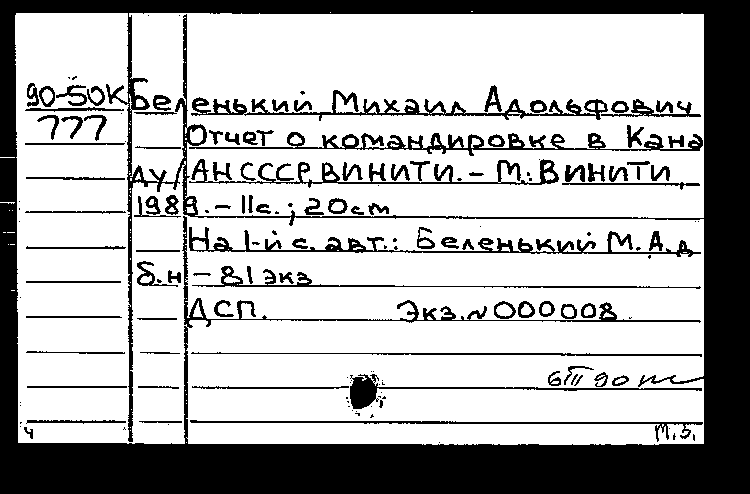 90-50К Беленький, Михаил Адольфович
777 Отчет о командировке в Кана
ду / АН СССР, ВИНИТИ. - М.: ВИНИТИ,
1989. - 11 с.; 20 cm
На 1-й с. авт.: Беленький М. А. д
б.н - 81 экз
ДСП. Экз. N 000008
6 III 90
ч м.б.